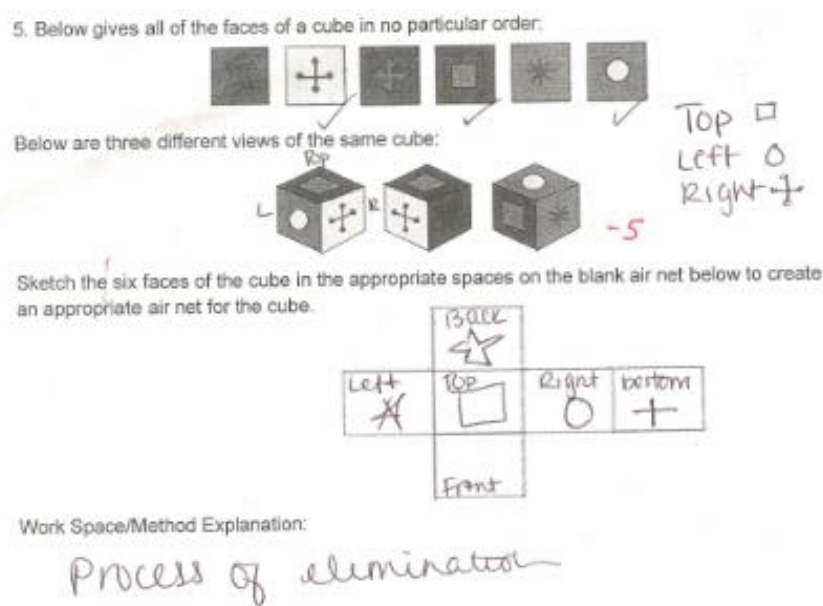 5. Below gives all of the faces of a cube in no particular order:
Top
Left
Right
Below are three different views of the same cube:
Top
L
R
-5
Sketch the six faces of the cube in the appropriate spaces on the blank air net below to create
an appropriate air net for the cube.
Back
Left Top Right bottom
Front
Work Space/Method Explanation:
Process of elimination